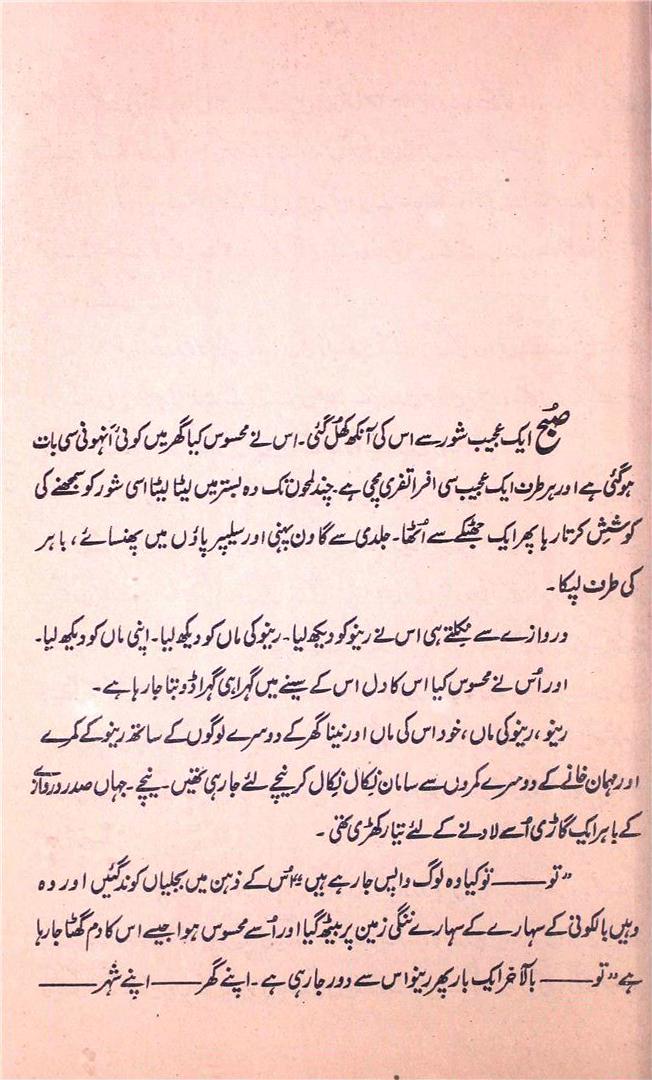 صبح ایک عجیب شور سے اس کی آنکھ کھل گئی۔ اس نے محسوس کیا گھر میں کوئی اَنہونی سی بات
ہوگئی ہے اور ہر طرف ایک عجیب سی افراتفری مچی ہے۔ چند لمحوں تک وہ بستر میں لیٹا لیٹا اسی شور کو سمجھنے کی
کوشش کرتا رہا پھر ایک جھٹکے سے اُٹھا۔ جلدی سے گاون پہنی اور سلیپر پاؤں میں پھنسائے، باہر
کی طرف لپکا۔
دروازے سے نکلتے ہی اس نے رینو کو دیکھ لیا۔ رینو کی ماں کو دیکھ لیا۔ اپنی ماں کو دیکھ لیا۔
اور اُس نے محسوس کیا اس کا دل اس کے سینے میں گہرا ہی گہرا ڈوبتا جا رہا ہے۔
رینو، رینو کی ماں، خود اس کی ماں اور نینا گھر کے دوسرے لوگوں کے ساتھ رینو کے کمرے
اور مہمان خانے کے دوسرے کمروں سے سامان نکال نکال کر نیچے لئے جا رہی تھیں۔ نیچے۔ جہاں صدر دروازے
کے باہر ایک گاڑی اُسے لادنے کے لئے تیار کھڑی تھی۔
”تو —— تو کیا وہ لوگ واپس جا رہے ہیں“ اُس کے ذہن میں بجلیاں کوند گئیں اور وہ
وہیں بالکونی کے سہارے کے سہارے ننگی زمین پر بیٹھ گیا اور اُسے محسوس ہوا جیسے اس کا دم گھٹا جا رہا
ہے ”تو —— بالآخر ایک بار پھر رینو اس سے دور جا رہی ہے۔ اپنے گھر —— اپنے شہر ——